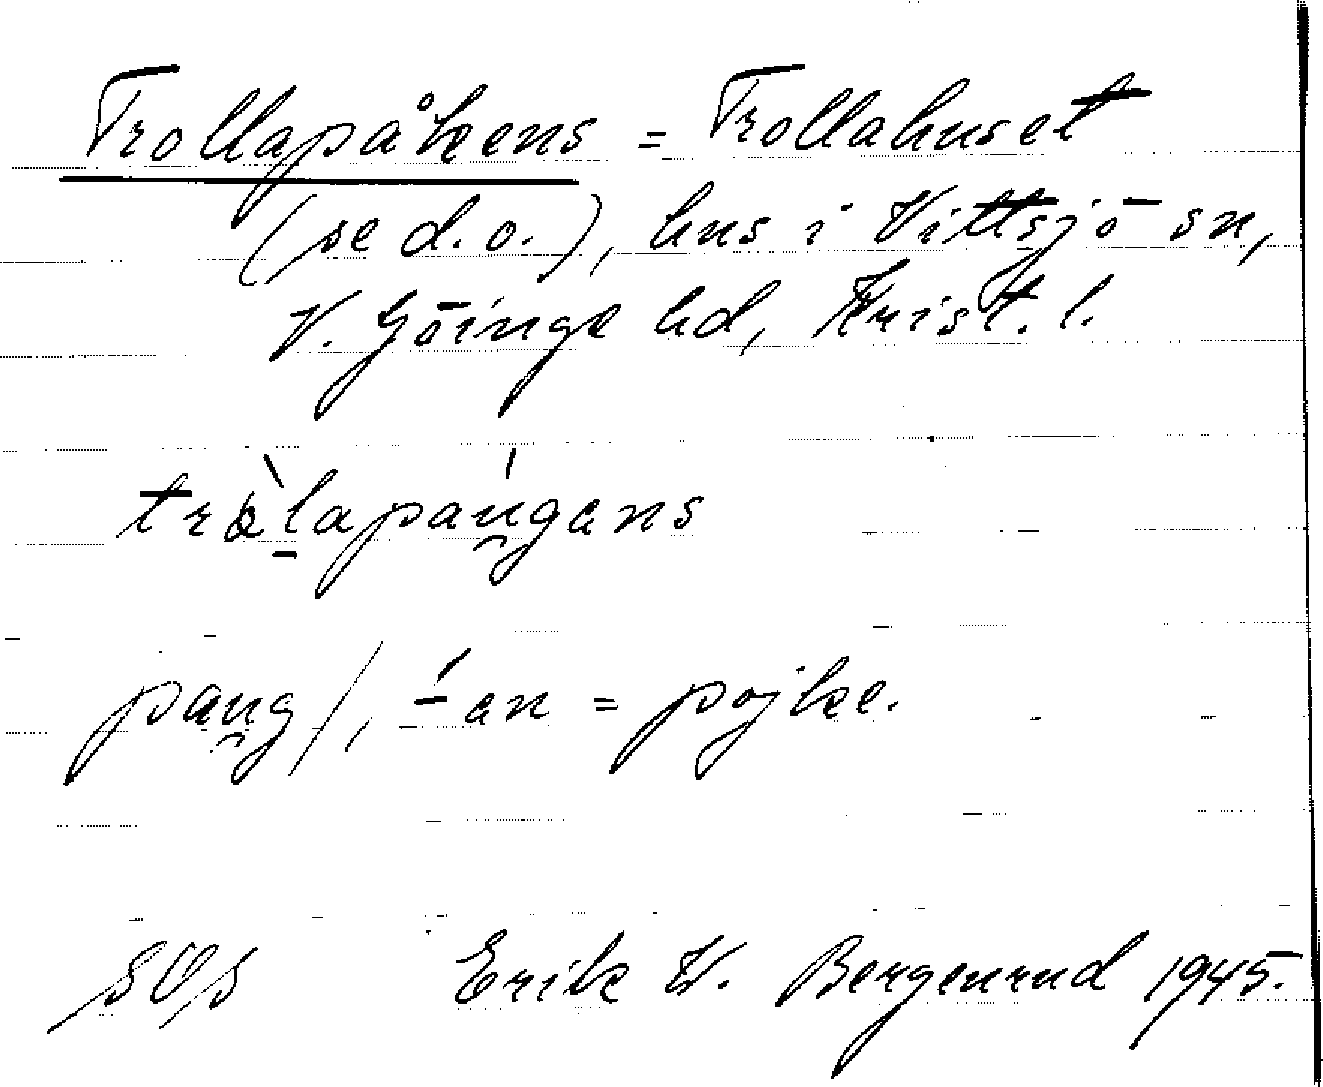 Trollapåkens = Trollahuset
(se d.o.), hus i Vittsjö sn,
V. Göinge hd, Krist. l.
tròlapáu̯gans
pau̯g/, -́an = pojke.
SOs Erik W. Bergenrud 1945.